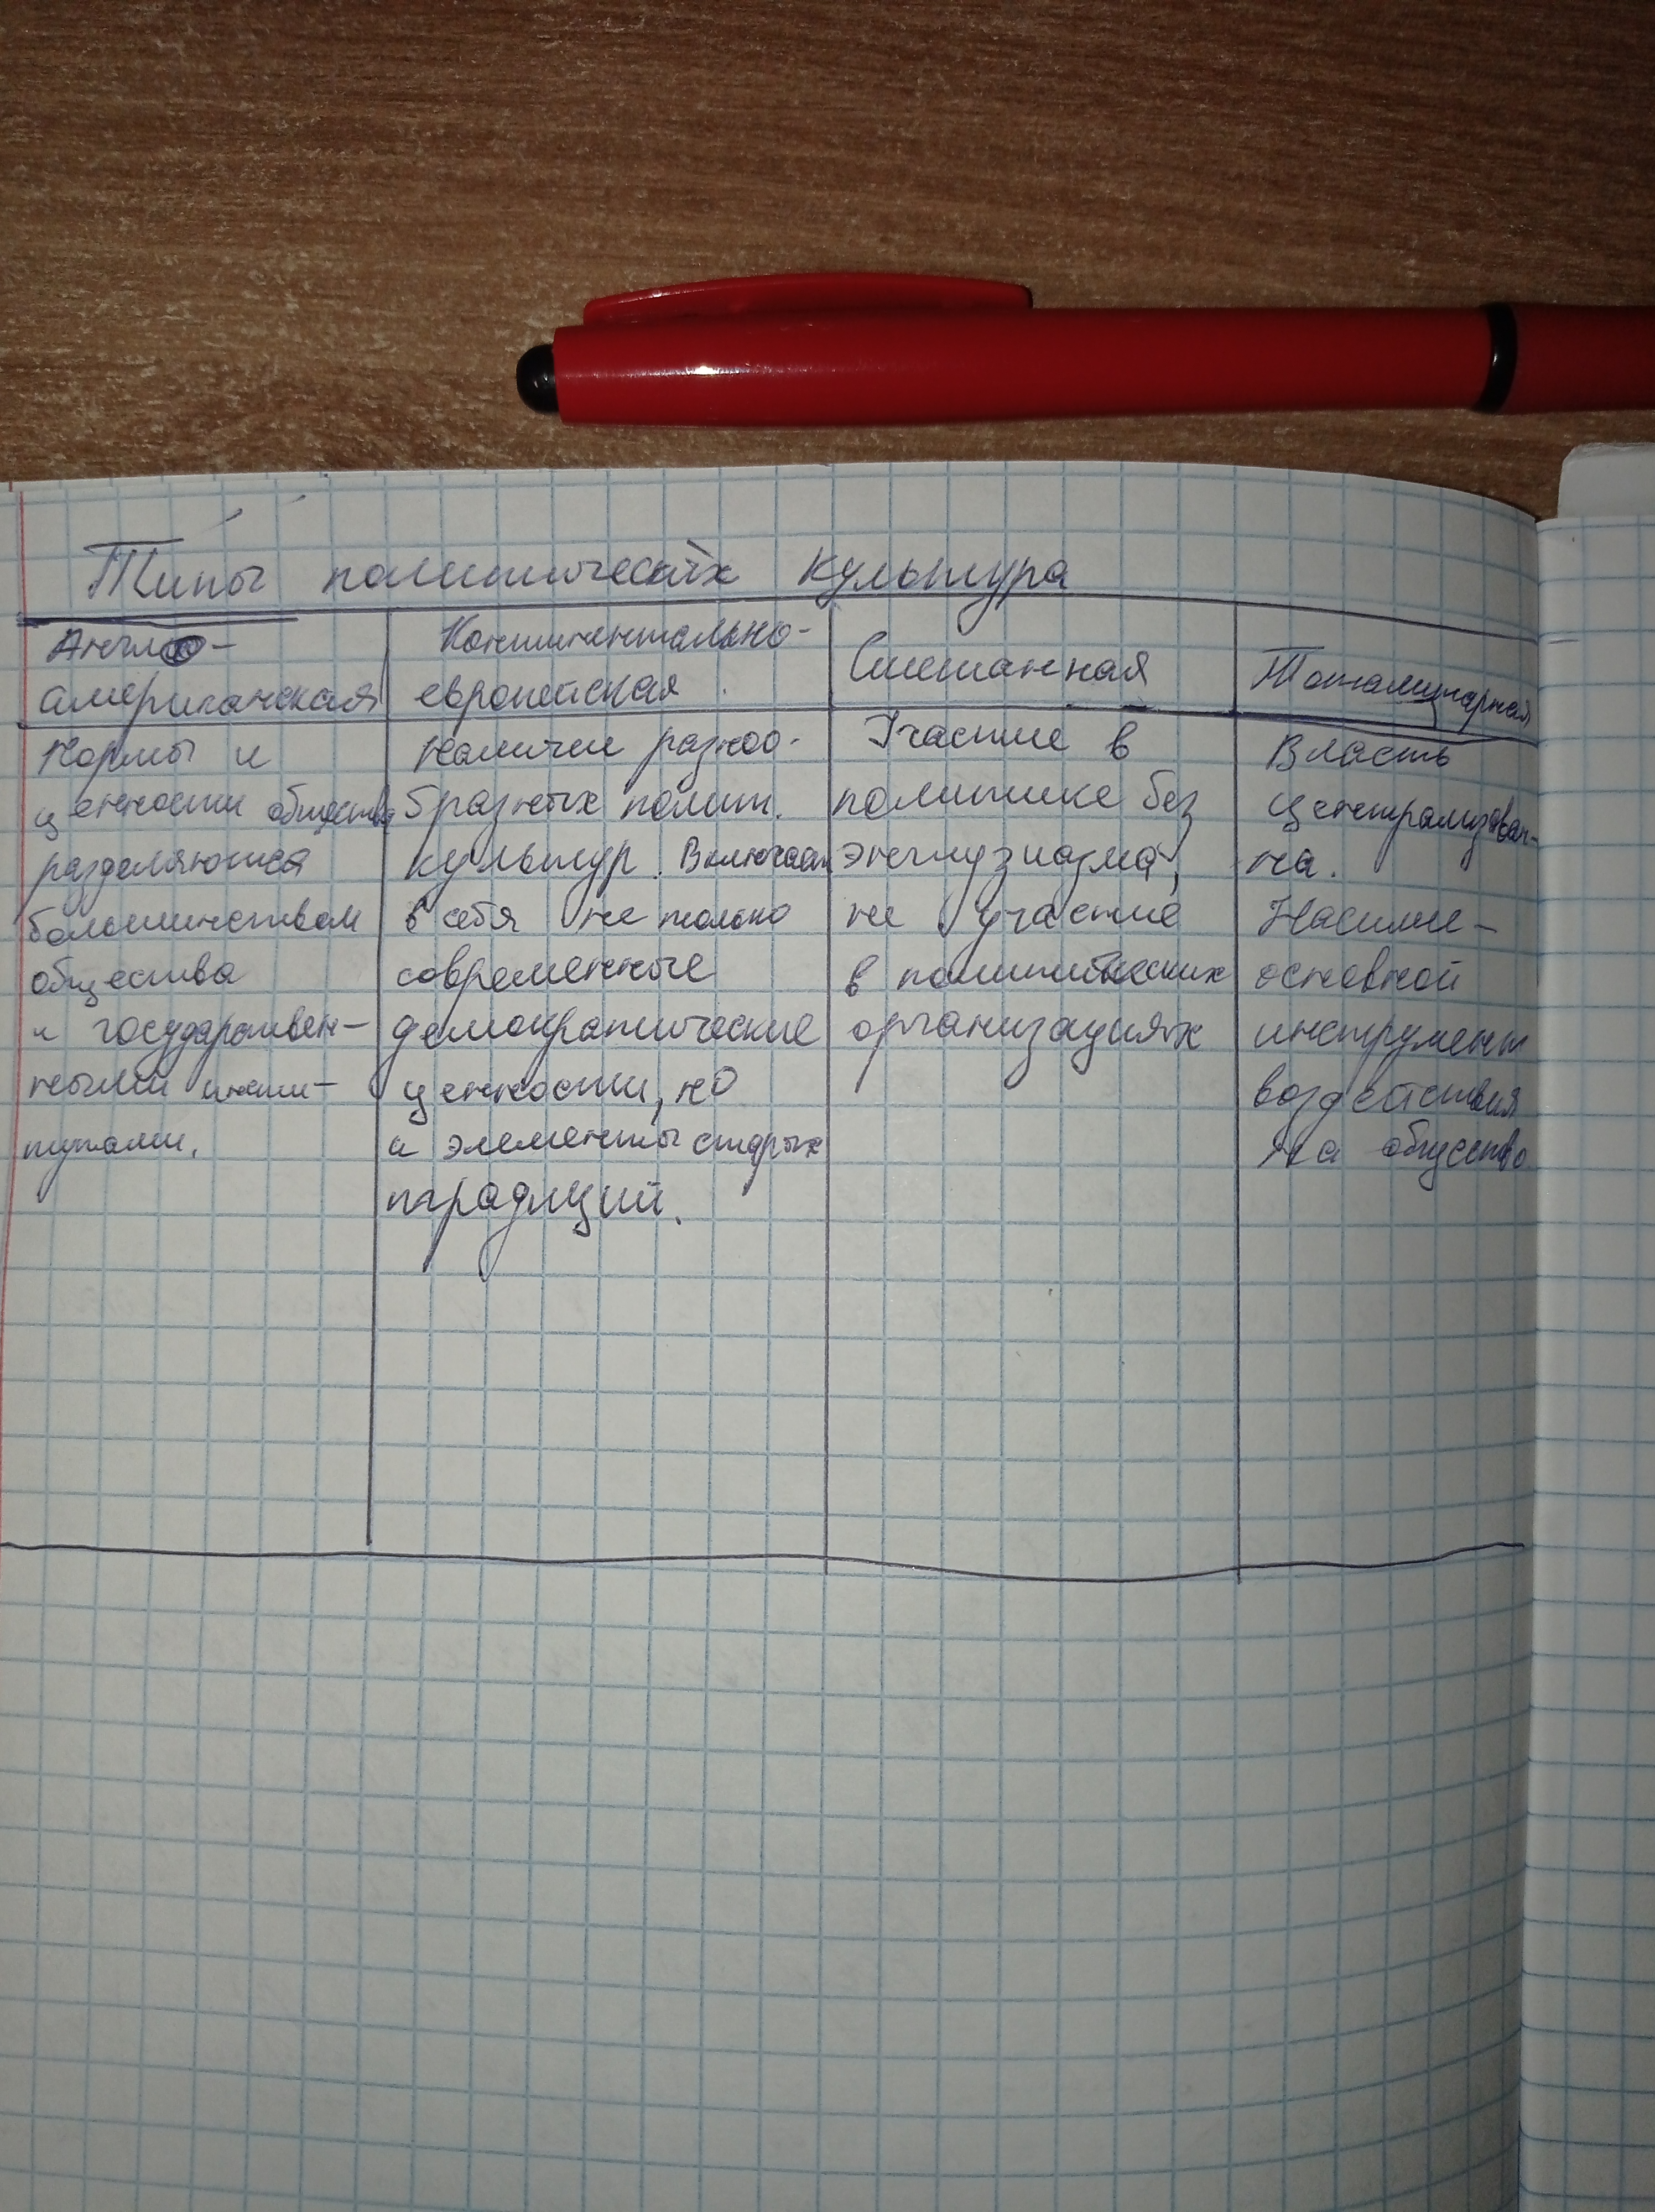 Типы политических культура
Англо-
американская
Нормы и
ценности общества
разделяются
большинством
общества
и государствен-
ными инсти-
тутами.
Континентально-
европейская
Наличие разноо-
бразных полит.
культур. Включает
в себя не только
современные
демократические
ценности, но
и элементы старых
традиций.
Смешанная
Участие в
политике без
энтузиазма,
не участие
в политических
организациях
Тоталитарная
Власть
централизован-
на.
Насилие -
основной
инструмент
воздействия
на общество